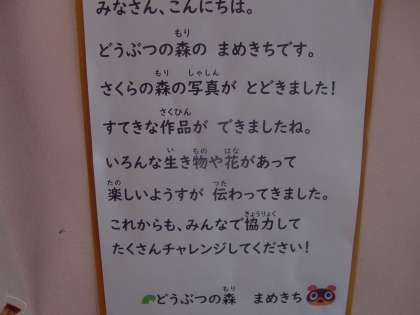 みなさん、こんにちは。
どうぶつの森の まめきちです。
さくらの森の写真が とどきました!
すてきな作品が できましたね。
いろんな生き物や花があって
楽しいようすが 伝わってきました。
これからも、みんなで協力して
たくさんチャレンジしてください!
どうぶつの森 まめきち